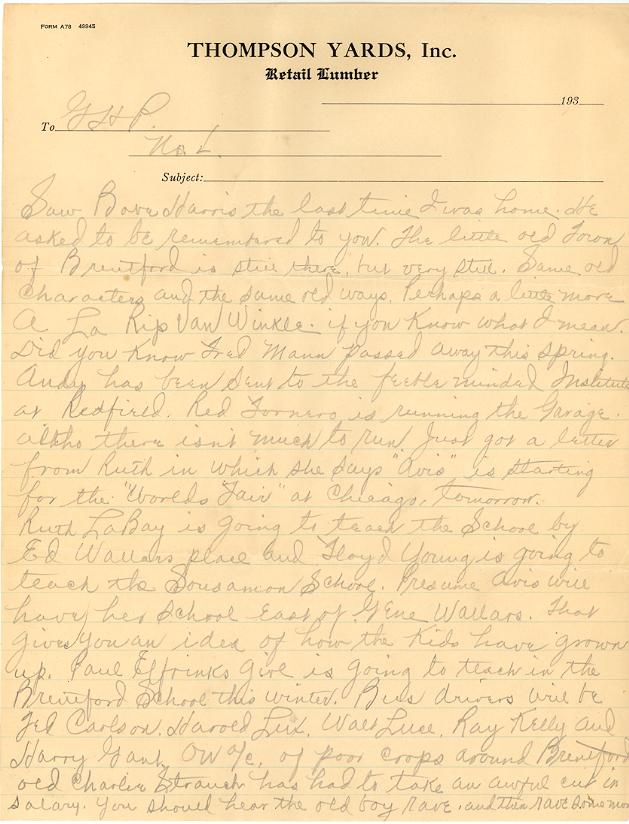 FORM A78 49945
THOMPSON YARDS, Inc.
Retail Lumber
193
To G H P.
No. L.
Subject:
Saw Bove Harris the last time I was home. He
asked to be remembered to you. The little old Town
of Brentford is still there, but very still. Same old
characters and the same old ways. Perhaps a little more
A La Rip Van Winkle. if you Know what I mean.
Did you Know Fred Mann passed away this spring.
Andy has been sent to the feeble minded Institute
at Redfield. Red Forneris is running the Garage.
altho there isn't much to run. Just got a letter
from Ruth in which she says "Avis" is starting
for the "Worlds Fair" at Chicago, tomorrow.
Ruth LaBay is going to teach the School by
Ed Wallars place and Floyd Young is going to
teach the Sousamon School. Presume Avis will
have her School East of Gene Wallars. That
gives you an idea of how the Kids have grown
up. Paul Elfrinks Girl is going to teach in the
Brentford School this winter. Bus drivers will be
Ted Carlson, Harold Lux, Walt Luce, Ray Kelly and
Harry Gant. of poor crops around Brentford
old Charlie Strauch has had to take an awful cut in
salary. You should hear the old boy rave. and then rave some more